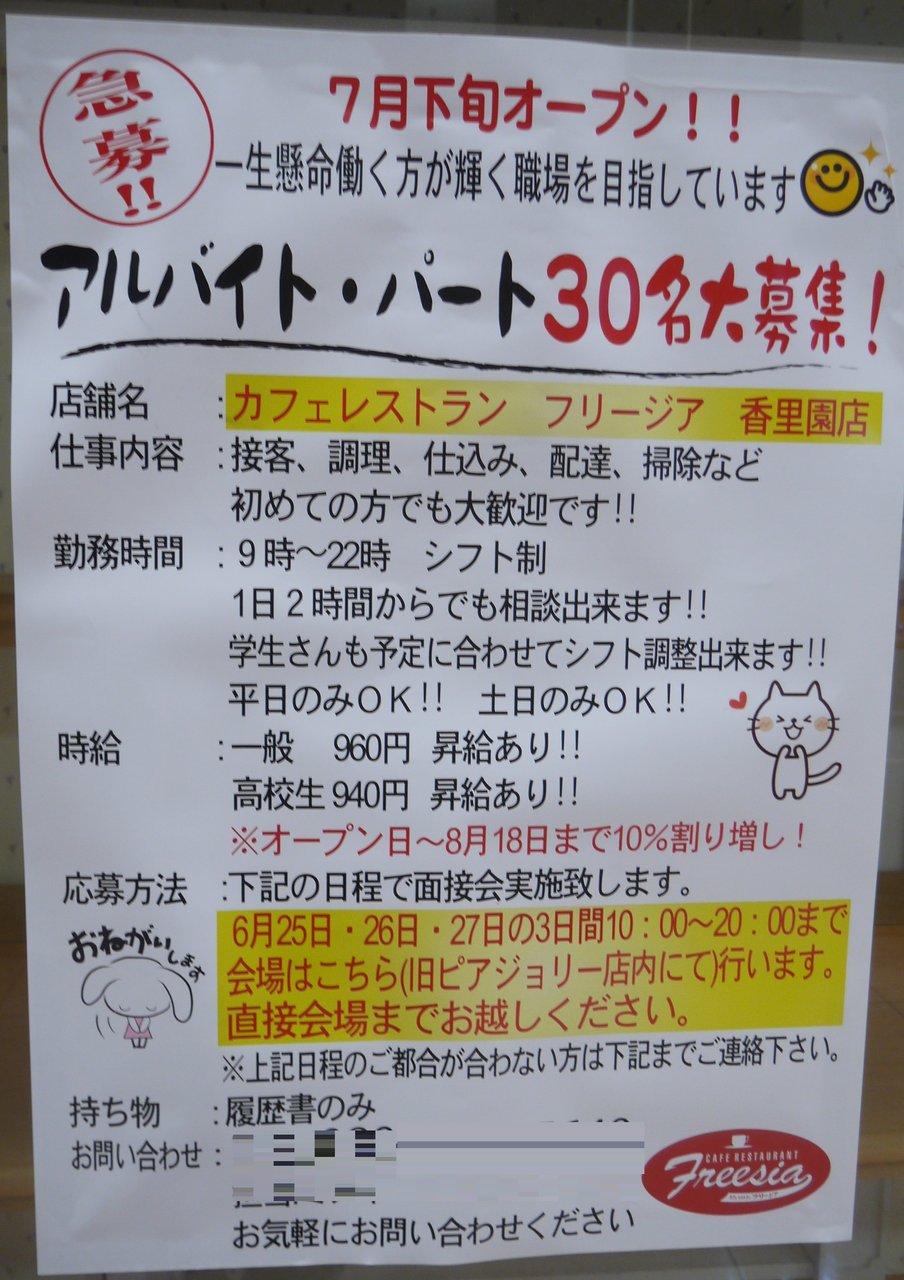 急募!!
7月下旬オープン!!
一生懸命働く方が輝く職場を目指しています
アルバイト・パート30名大募集!
店舗名 :カフェレストラン フリージア 香里園店
仕事内容 :接客、調理、仕込み、配達、掃除など
初めての方でも大歓迎です!!
勤務時間 :9時～22時 シフト制
1日2時間からでも相談出来ます!!
学生さんも予定に合わせてシフト調整出来ます!!
平日のみOK!! 土日のみOK!!
時給 :一般 960円 昇給あり!!
高校生 940円 昇給あり!!
※オープン日～8月18日まで10%割り増し!
応募方法 :下記の日程で面接会実施致します。
おねがいします
6月25日・26日・27日の3日間10:00～20:00まで
会場はこちら(旧ピアジョリー店内にて)行います。
直接会場までお越しください。
※上記日程のご都合が合わない方は下記までご連絡下さい。
持ち物 :履歴書のみ
お問い合わせ:
お気軽にお問い合わせください
CAFE RESTAURANT
Freesia